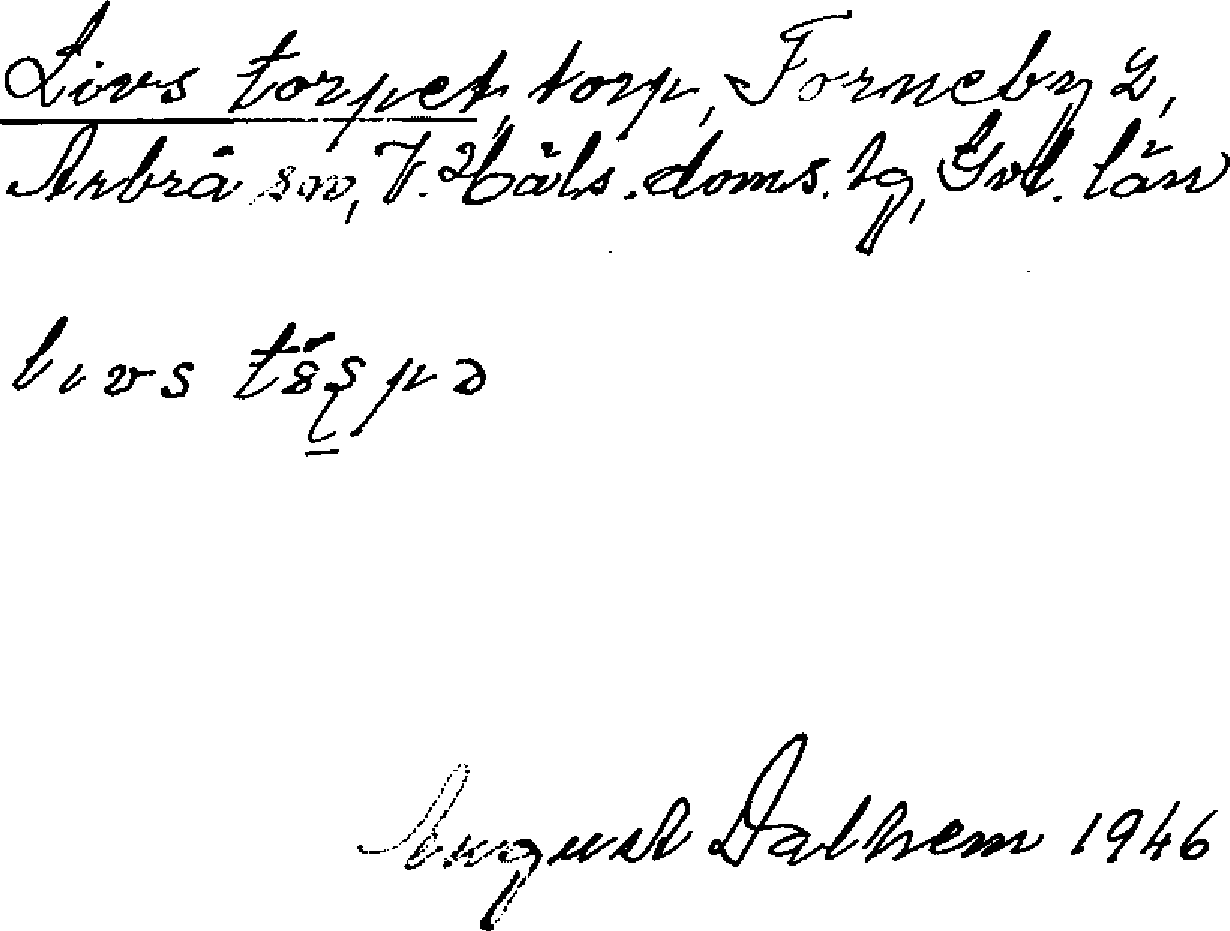 Livs torpet, torp, Forneby 2,
Arbrå sn, V. Häls. doms. tg, Gvl. län
livs
August Dalhem 1946